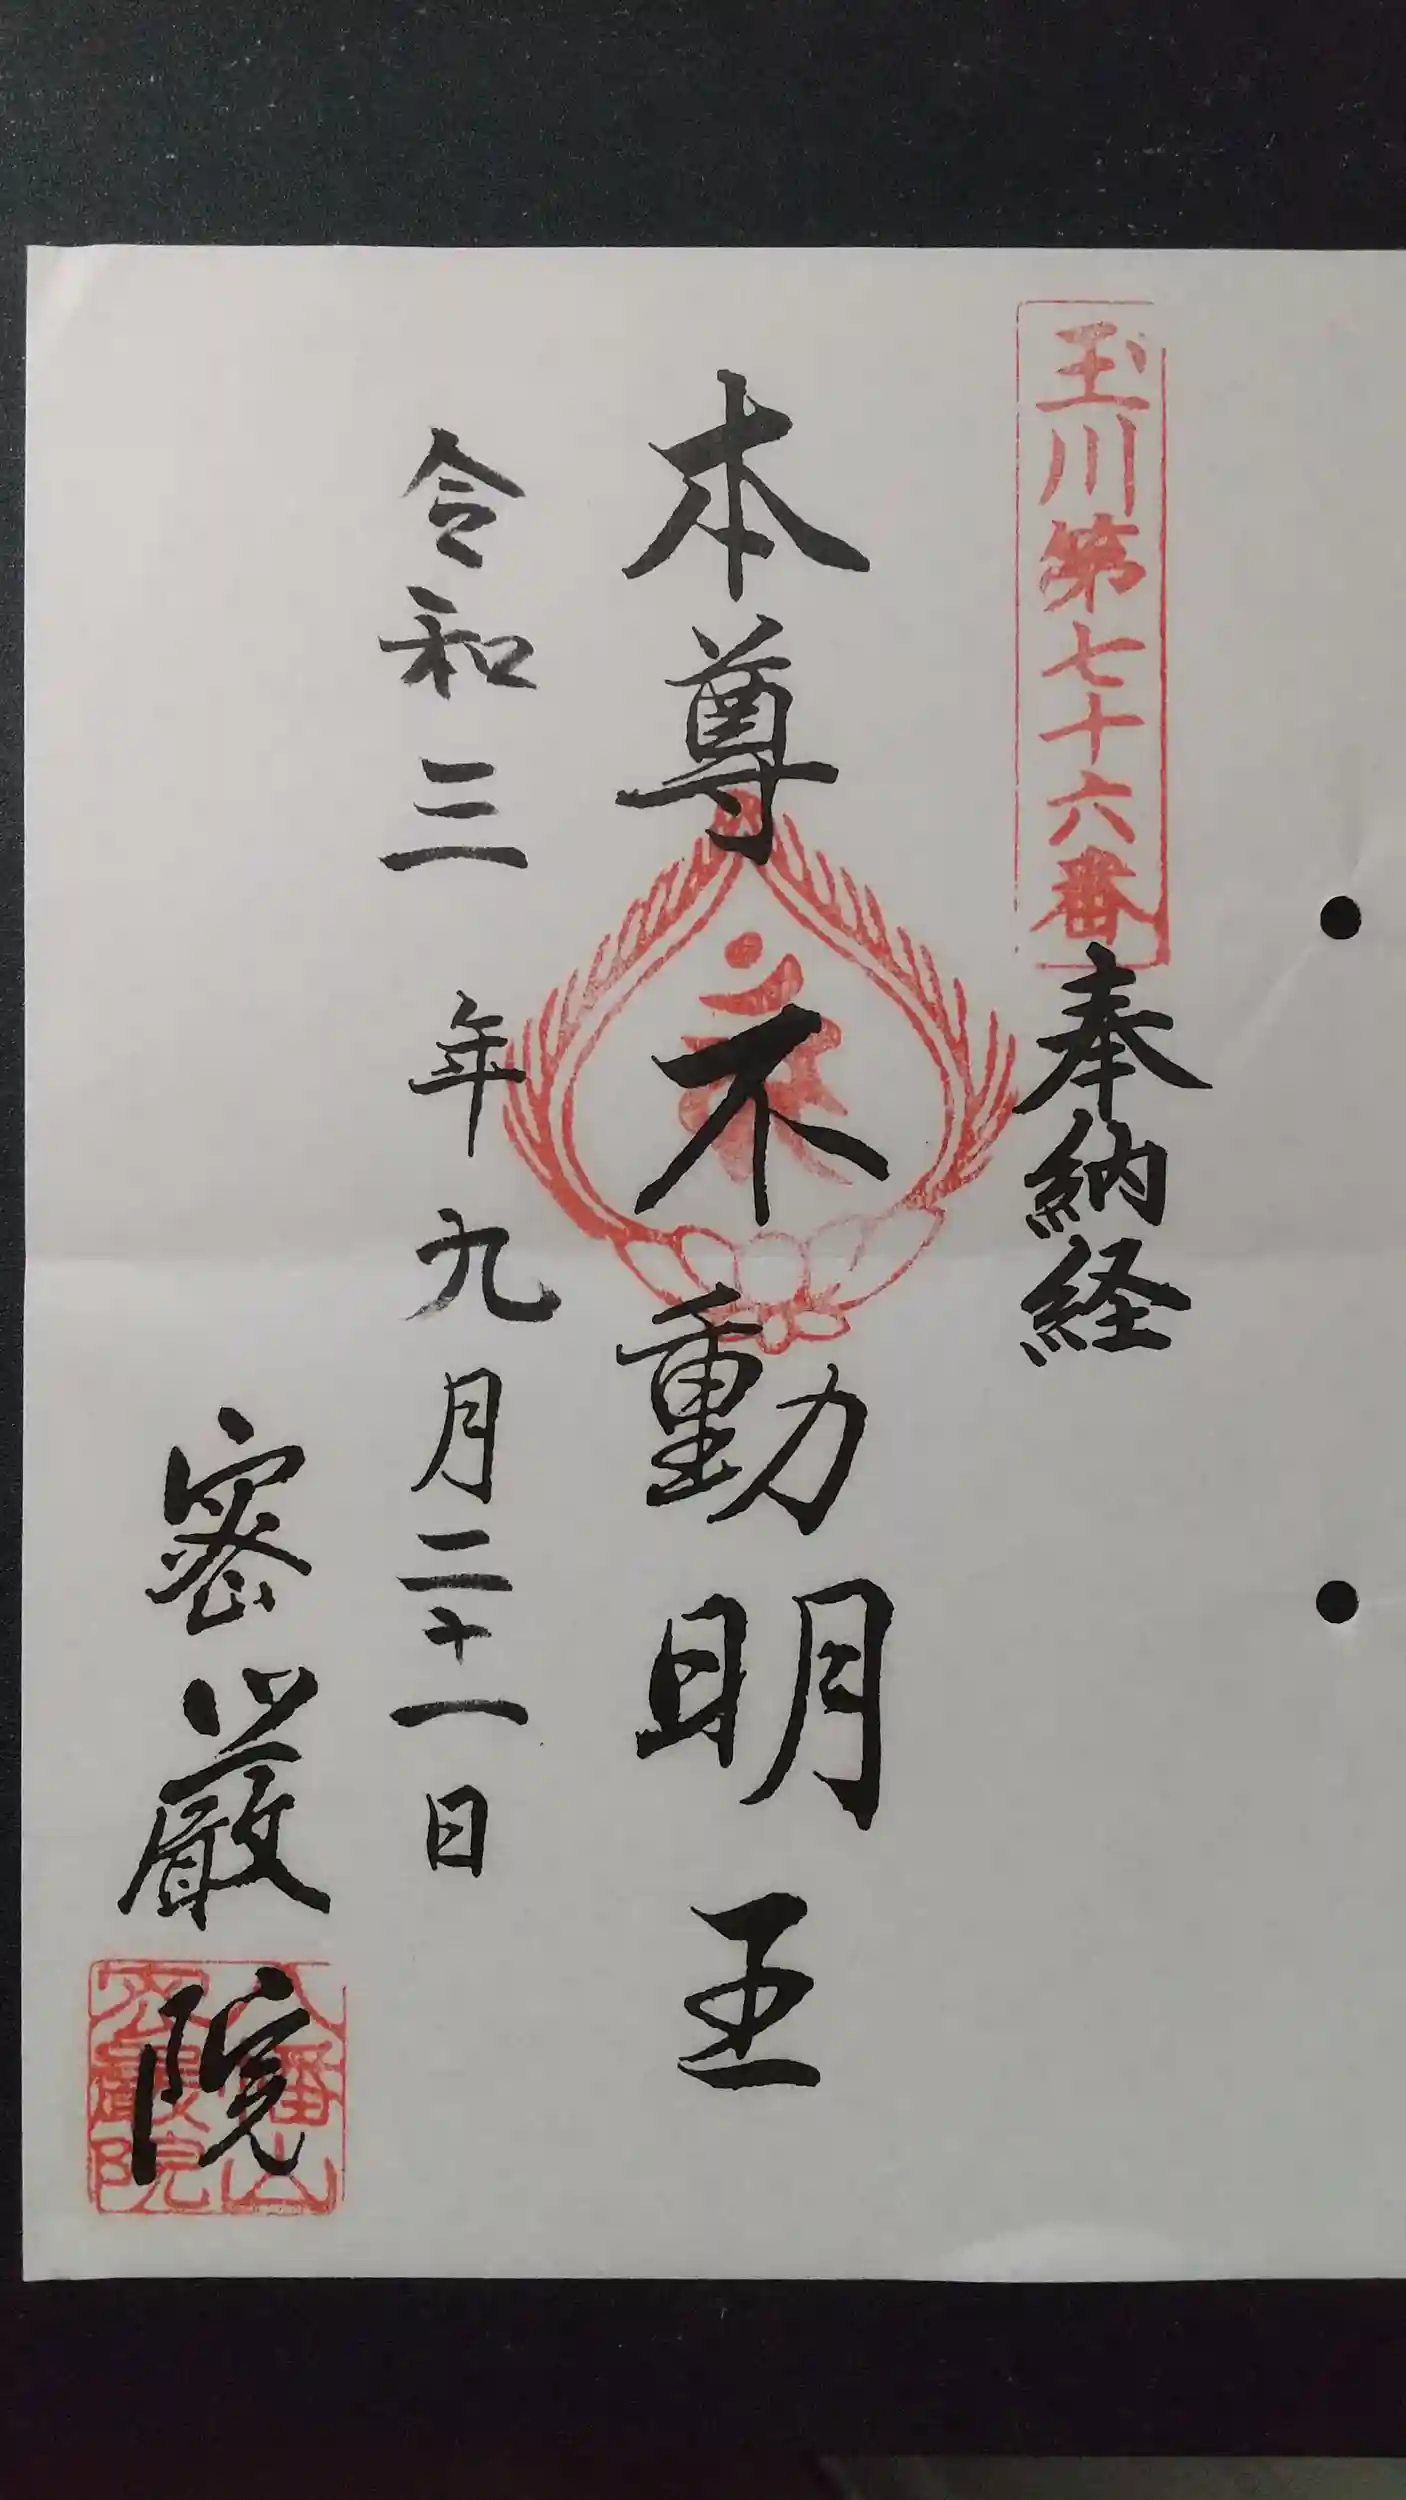 玉川第七十六番
奉納経
本尊不動明王
令和三年九月二十一日
密厳院
八幡山
密嚴院